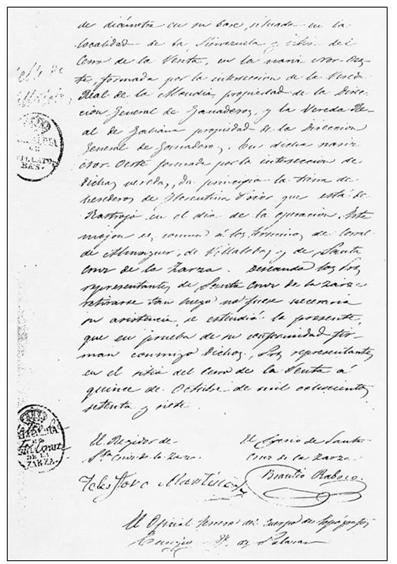 de diámetro en su base, situado en la
localidad de la y sitio del
Cerro de la Venta, en la nariz
formada por la intersección de la Vereda
Real de la Mancha, propiedad de la Direc
cion General de Ganaderos, y la Vereda Re
al de propiedad de la Direccion
General de Ganaderos, En dicha nariz
Oeste formada por la interseccion de
dichas veredas, da principio la tierra de
herederos de Florentino que está de
Rastrojo en el dia de la operacion. Este
mojon es comun a los términos de Corral
de Almaguer, de Villatobas y de Santa
Cruz de la Zarza. Deseando los Sres
representantes de Santa Cruz de la Zarza
retirarse tan luego no fuese necesaria
su asistencia, se estendió la presente
que en prueba de su conformidad fir-
man conmigo dichos Sres representantes
en el sitio del Cerro de la Venta á
quince de Octubre de mil ochocientos
setenta y siete
El Regidor de
Sta Cruz de la Zarza
Telesforo Martinez
El de Santa
Cruz de la Zarza
Braulio Raboso
El Oficial del Cuerpo de Topógrafos
DE
VILLATO
BAS
DE
Sta CRUZ
DE LA
ZARZA